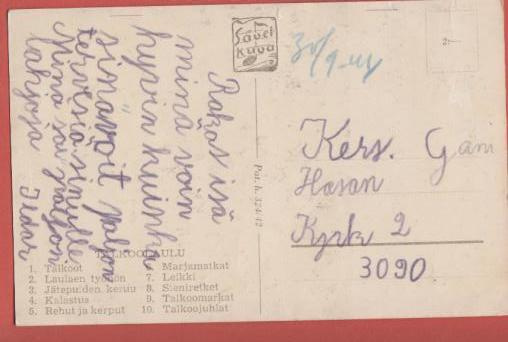 Rakas isä
minä voin
hyvin kuinka
sinä voit paljon
terveisiä sinulle
minä sain paljon
lahjoja Ildar
Sävel
kuva
30/9-44
Pat. h. 324/42
Kers. Gani
Hasan
Kpk 2
3090
TALKOOLAULU
1. Talkoot
2. Laulaen työhön
3. Jätepuiden keruu
4. Kalastus
5. Rehut ja kerput
6. Marjamatkat
7. Leikki
8. Sieniretket
9. Talkoomarkat
10. Talkoojuhlat